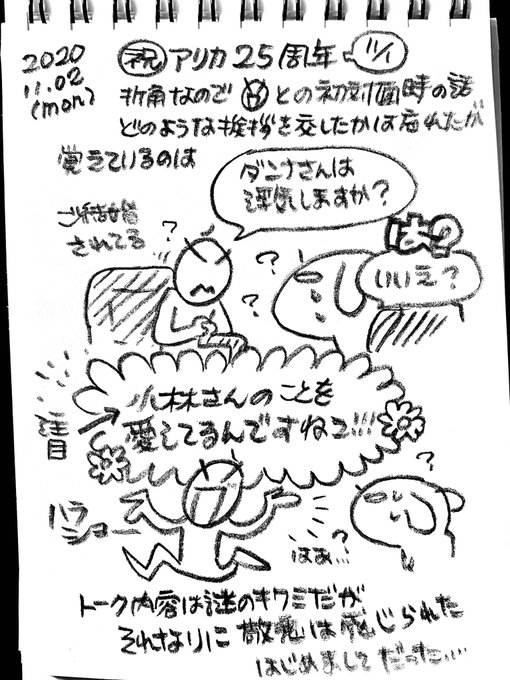 2020
11.02
(mon)
祝 アリカ25周年 11/1
折角なので との初対面時の話
どのような挨拶を交したかは忘れたが
覚えているのは
ダンナさんは
浮気しますか?
ご結婚
されてる
?
?
?
は?
いいえ?
注目
小林さんのことを
愛してるんですねェ!!!
ハラショー
?
?
はあ…
トーク内容は謎のキワミだが
それなりに敬意は感じられた
はじめましてだった…